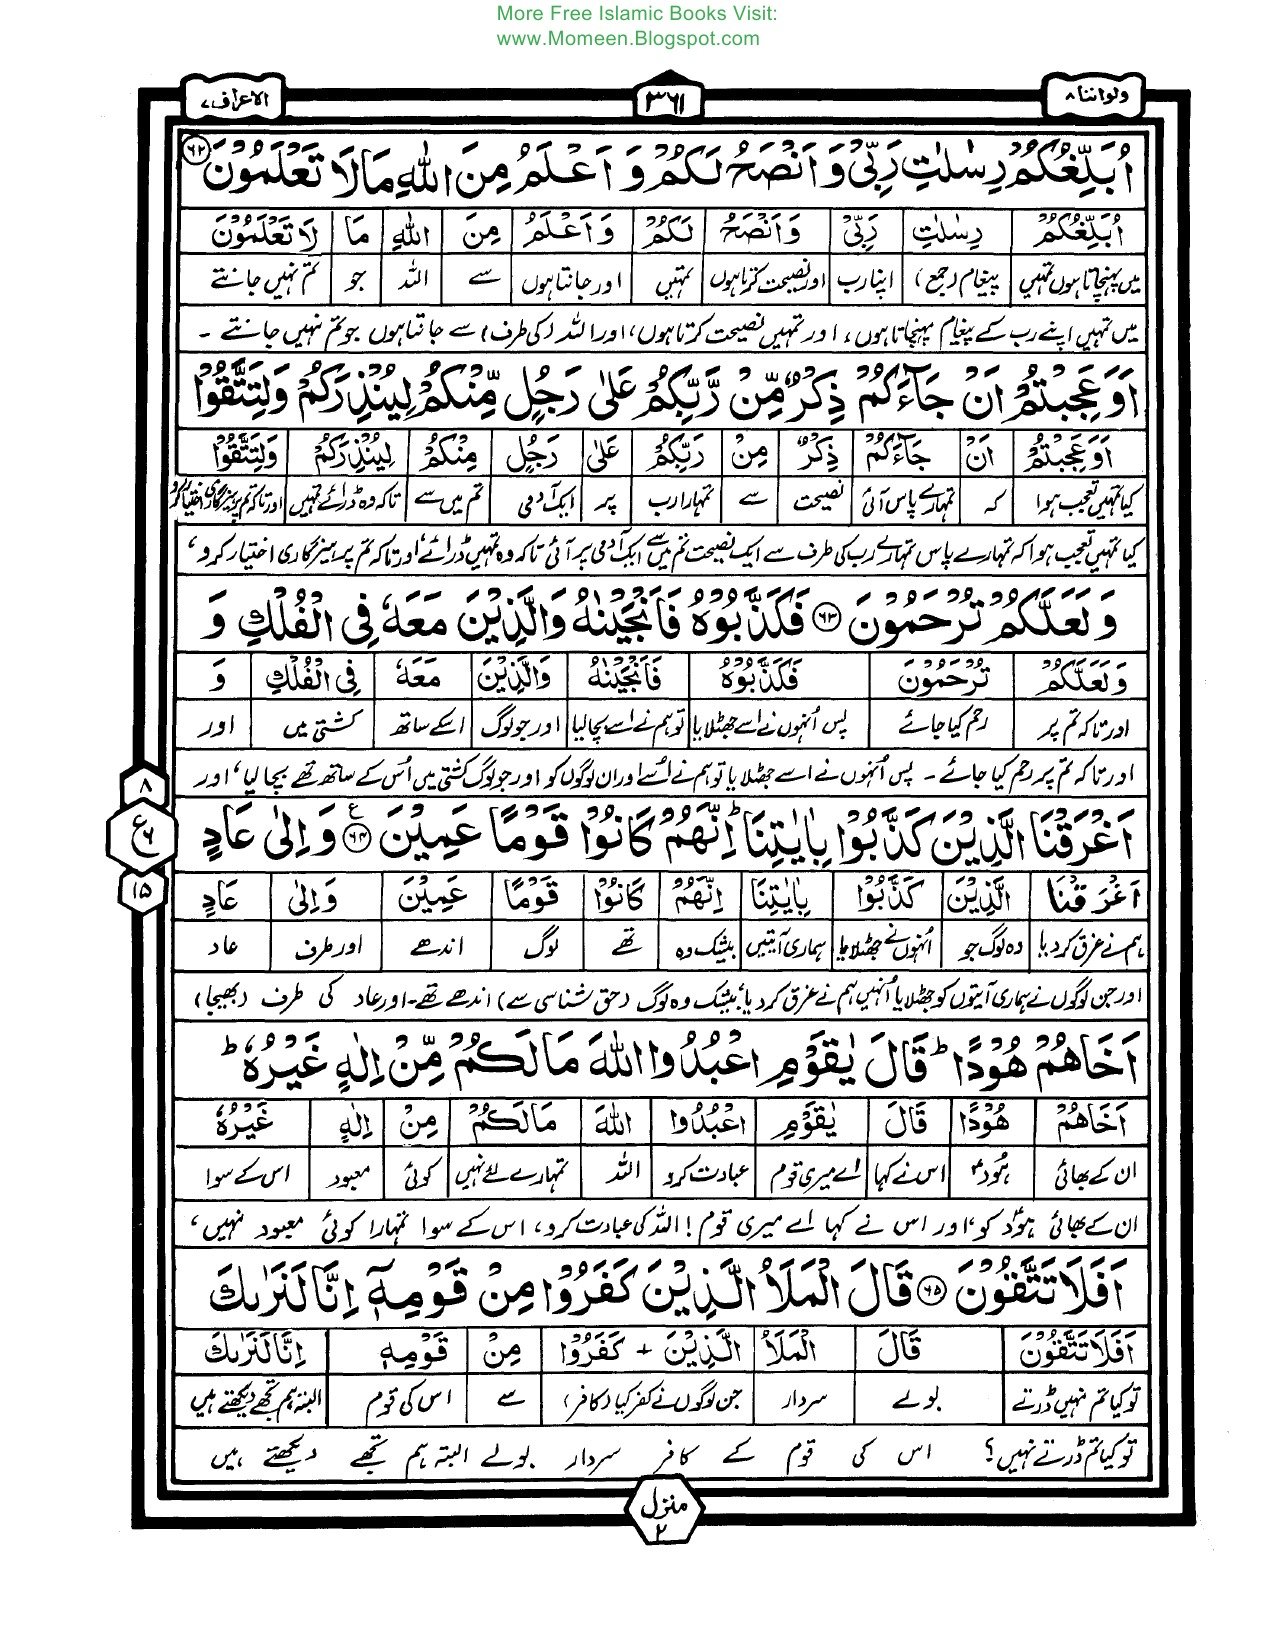 More Free Islamic Books Visit:
www.Momeen.Blogspot.com
ولواننا ۸
۳۶۱
الاعراف ۷
اُبَلِّغُكُمْ رِسٰلٰتِ رَبِّیْ وَاَنْصَحُ لَكُمْ وَاَعْلَمُ مِنَ اللّٰهِ مَا لَا تَعْلَمُوْنَ ۶۲
اُبَلِّغُكُمْ رِسٰلٰتِ رَبِّیْ وَاَنْصَحُ لَكُمْ وَاَعْلَمُ مِنَ اللّٰهِ مَا لَا تَعْلَمُوْنَ
میں پہنچاتا ہوں تمہیں پیغام (جمع) اپنا رب اور نصیحت کرتا ہوں تمہیں اور جانتا ہوں سے اللہ جو تم نہیں جانتے
میں تمہیں اپنے رب کے پیغام پہنچاتا ہوں، اور تمہیں نصیحت کرتا ہوں، اور اللہ (کی طرف) سے جانتا ہوں جو تم نہیں جانتے ۔
اَوَعَجِبْتُمْ اَنْ جَآءَكُمْ ذِكْرٌ مِّنْ رَّبِّكُمْ عَلٰی رَجُلٍ مِّنْكُمْ لِیُنْذِرَكُمْ وَلِتَتَّقُوْا
اَوَعَجِبْتُمْ اَنْ جَآءَكُمْ ذِكْرٌ مِنْ رَبِّكُمْ عَلٰی رَجُلٍ مِنْكُمْ لِیُنْذِرَكُمْ وَلِتَتَّقُوْا
کیا تمہیں تعجب ہوا کہ تمہارے پاس آئی نصیحت سے تمہارا رب پر ایک آدمی تم میں سے تاکہ وہ ڈرائے تمہیں اور تاکہ تم پرہیزگاری اختیار کرو
کیا تمہیں تعجب ہوا کہ تمہارے پاس تمہارے رب کی طرف سے ایک نصیحت تم میں سے ایک آدمی پر آئی تاکہ وہ تمہیں ڈرائے، اور تاکہ تم پرہیزگاری اختیار کرو،
وَلَعَلَّكُمْ تُرْحَمُوْنَ ۶۳ فَكَذَّبُوْهُ فَاَنْجَیْنٰهُ وَالَّذِیْنَ مَعَهٗ فِی الْفُلْكِ وَ
وَلَعَلَّكُمْ تُرْحَمُوْنَ فَكَذَّبُوْهُ فَاَنْجَیْنٰهُ وَالَّذِیْنَ مَعَهٗ فِی الْفُلْكِ وَ
اور تاکہ تم پر رحم کیا جائے پس انہوں نے اسے جھٹلایا تو ہم نے اسے بچا لیا اور جو لوگ اسکے ساتھ کشتی میں اور
اور تاکہ تم پر رحم کیا جائے ۔ پس انہوں نے اسے جھٹلایا تو ہم نے اُسے اور ان لوگوں کو اور جو لوگ کشتی میں اُس کے ساتھ تھے بچا لیا، اور
اَغْرَقْنَا الَّذِیْنَ كَذَّبُوْا بِاٰیٰتِنَا ؕ اِنَّهُمْ كَانُوْا قَوْمًا عَمِیْنَ ۶۴ وَاِلٰی عَادٍ
۸
ع ۶
۱۵
اَغْرَقْنَا الَّذِیْنَ كَذَّبُوْا بِاٰیٰتِنَا اِنَّهُمْ كَانُوْا قَوْمًا عَمِیْنَ وَاِلٰی عَادٍ
ہم نے غرق کردیا وہ لوگ جو انہوں نے جھٹلایا ہماری آیتیں بیشک وہ تھے لوگ اندھے اور طرف عاد
اور جن لوگوں نے ہماری آیتوں کو جھٹلایا اُنہیں ہم نے غرق کر دیا، بیشک وہ لوگ (حق شناسی سے) اندھے تھے۔ اور عاد کی طرف (بھیجا)
اَخَاهُمْ هُوْدًا ؕ قَالَ یٰقَوْمِ اعْبُدُوا اللّٰهَ مَا لَكُمْ مِّنْ اِلٰهٍ غَیْرُهٗ ؕ
اَخَاهُمْ هُوْدًا قَالَ یٰقَوْمِ اعْبُدُوا اللّٰهَ مَا لَكُمْ مِنْ اِلٰهٍ غَیْرُهٗ
ان کے بھائی ہودؑ اس نے کہا اے میری قوم عبادت کرو اللہ تمہارے لئے نہیں کوئی معبود اس کے سوا
ان کے بھائی ہودؑ کو، اور اس نے کہا اے میری قوم! اللہ کی عبادت کرو، اس کے سوا تمہارا کوئی معبود نہیں،
اَفَلَا تَتَّقُوْنَ ۶۵ قَالَ الْمَلَاُ الَّذِیْنَ كَفَرُوْا مِنْ قَوْمِهٖٓ اِنَّا لَنَرٰىكَ
اَفَلَا تَتَّقُوْنَ قَالَ الْمَلَاُ الَّذِیْنَ + كَفَرُوْا مِنْ قَوْمِهٖ اِنَّا لَنَرٰىكَ
تو کیا تم نہیں ڈرتے بولے سردار جن لوگوں نے کفر کیا (کافر) سے اس کی قوم البتہ ہم تجھے دیکھتے ہیں
تو کیا تم ڈرتے نہیں؟ اس کی قوم کے کافر سردار بولے البتہ ہم تجھے دیکھتے ہیں
منزل ۲